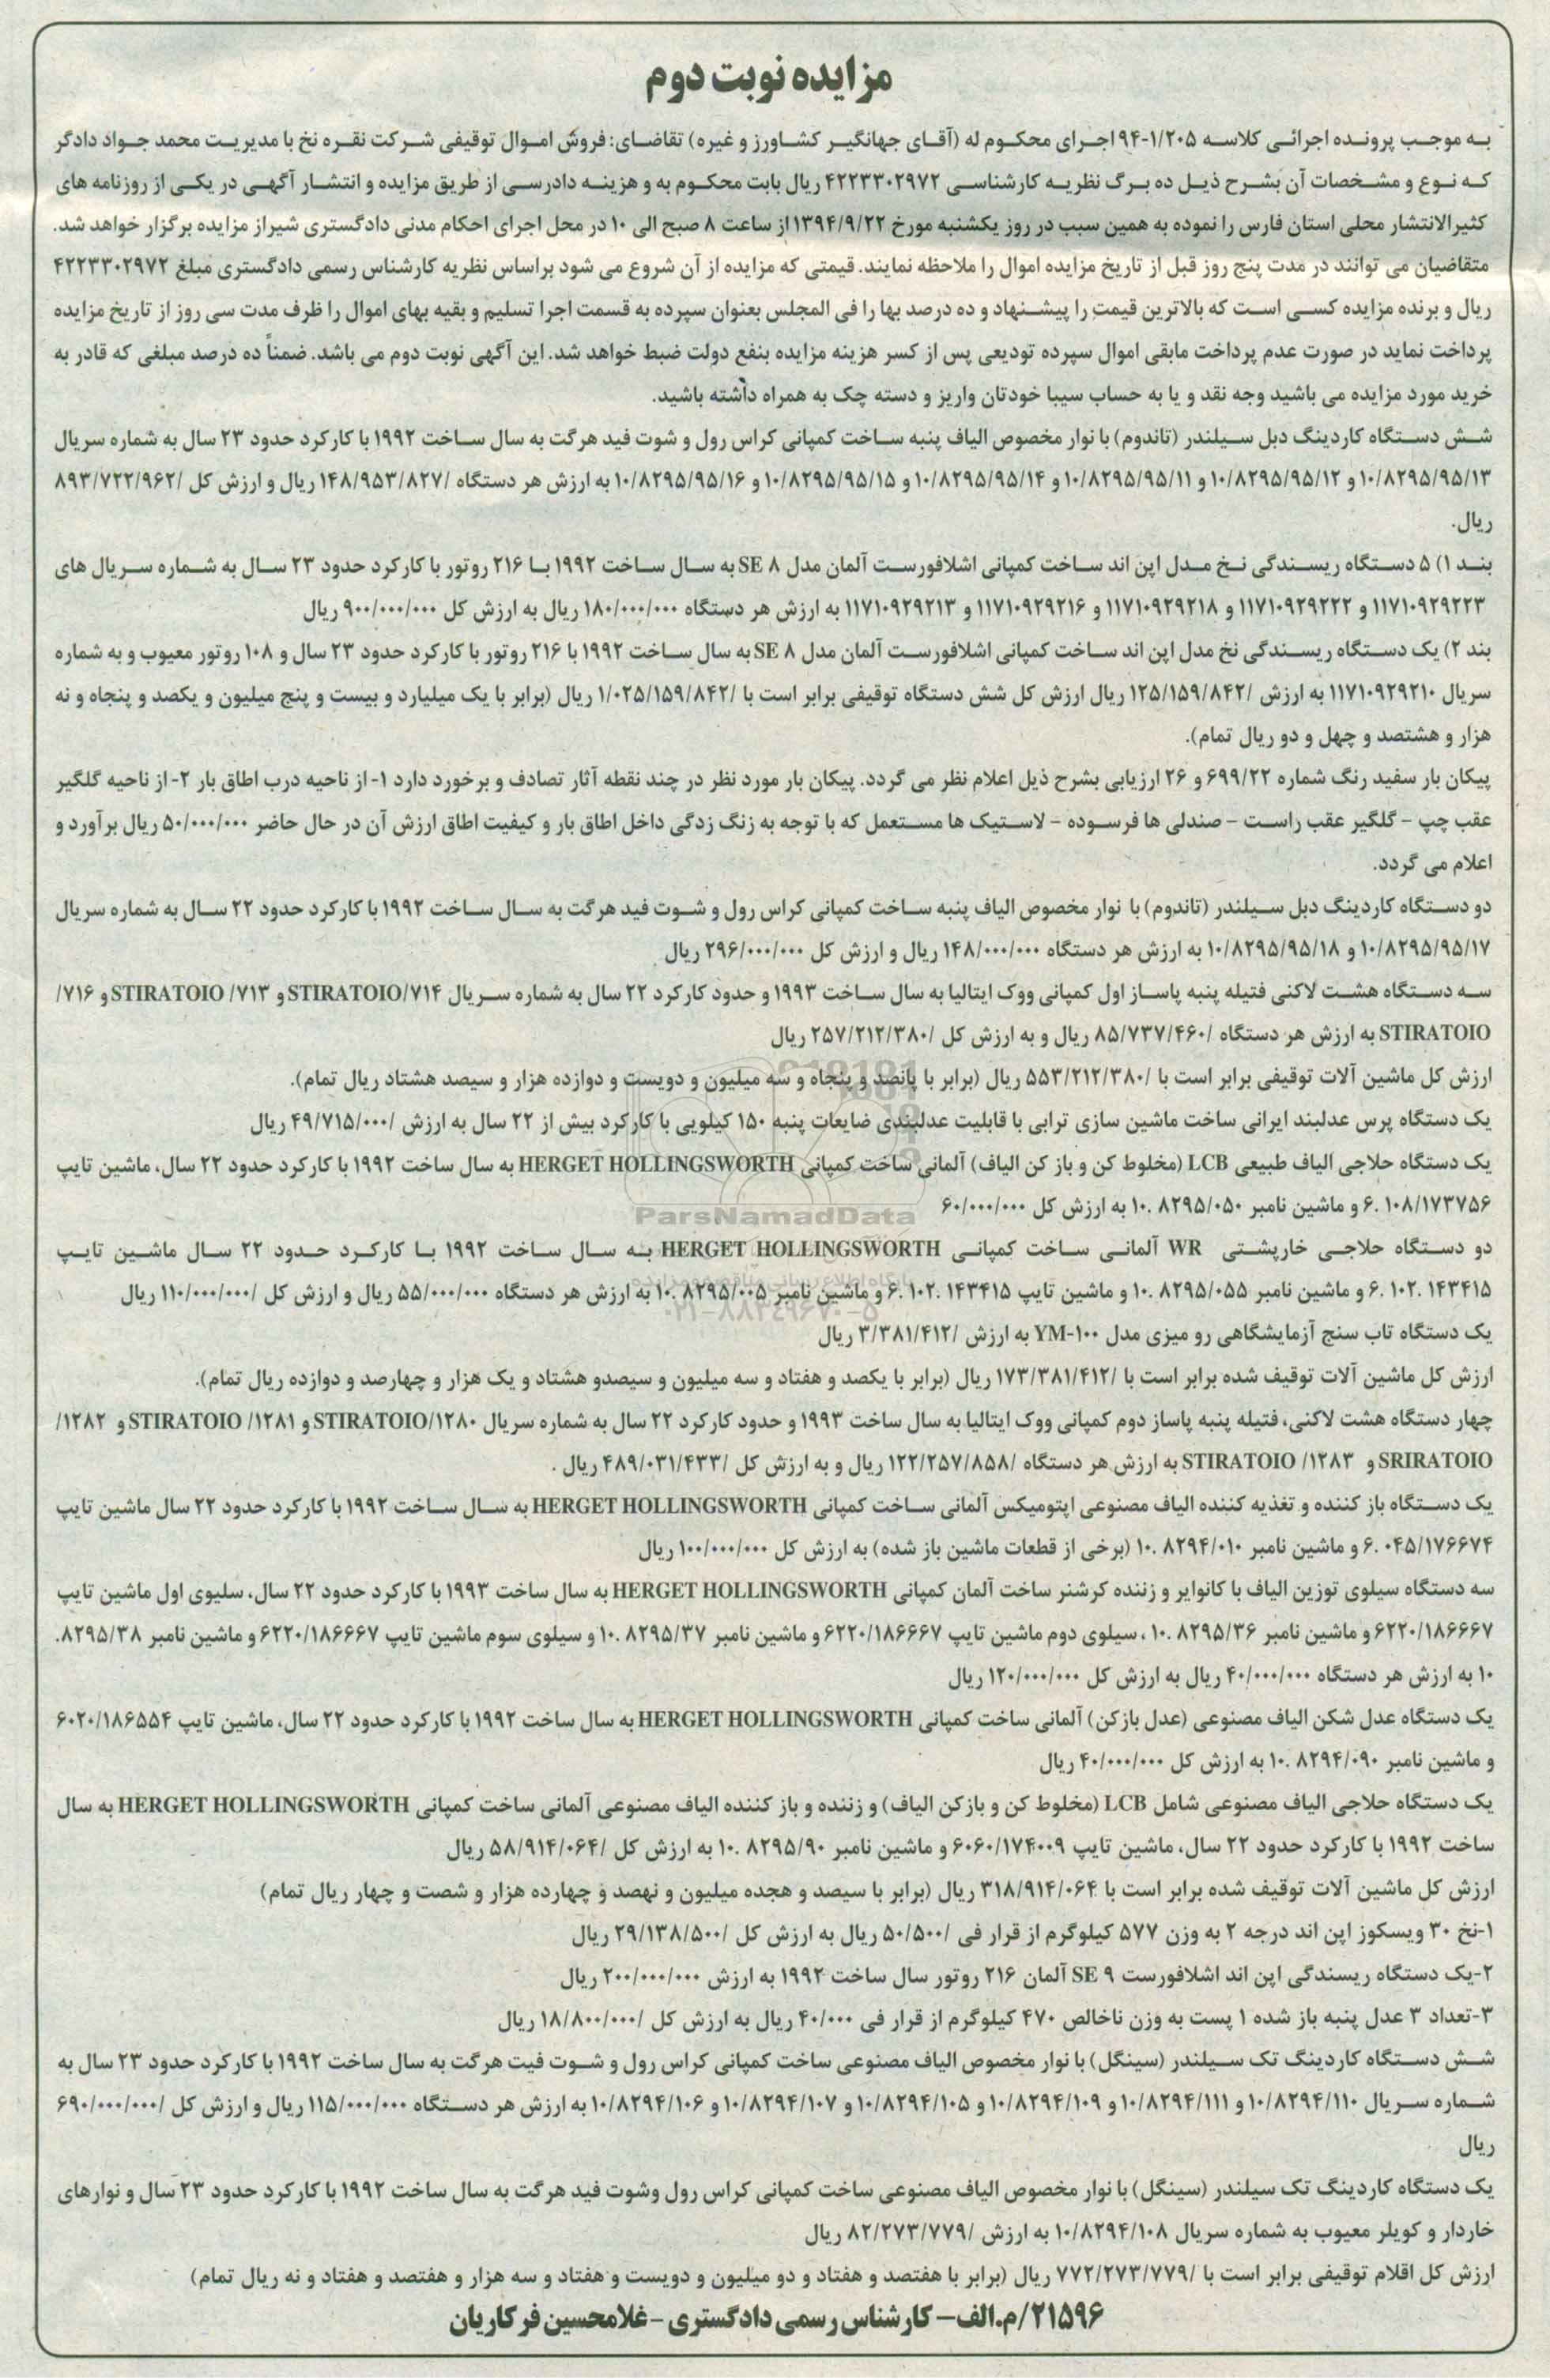 مزایده نوبت دوم
به موجب پرونده اجرائی کلاسه ۹۴-۱/۲۰۵ اجرای محکوم له (آقای جهانگیر کشاورز و غیره) تقاضای: فروش اموال توقیفی شرکت نقره نخ با مدیریت محمد جواد دادگر
که نوع و مشخصات آن بشرح ذیل ده برگ نظریه کارشناسی ۴۲۲۳۳۰۲۹۷۲ ریال بابت محکوم به و هزینه دادرسی از طریق مزایده و انتشار آگهی در یکی از روزنامه های
کثیرالانتشار محلی استان فارس را نموده به همین سبب در روز یکشنبه مورخ ۱۳۹۴/۹/۲۲ از ساعت ۸ صبح الی ۱۰ در محل اجرای احکام مدنی دادگستری شیراز مزایده برگزار خواهد شد.
متقاضیان می توانند در مدت پنج روز قبل از تاریخ مزایده اموال را ملاحظه نمایند. قیمتی که مزایده از آن شروع می شود براساس نظریه کارشناس رسمی دادگستری مبلغ ۴۲۲۳۳۰۲۹۷۲
ریال و برنده مزایده کسی است که بالاترین قیمت را پیشنهاد و ده درصد بها را فی المجلس بعنوان سپرده به قسمت اجرا تسلیم و بقیه بهای اموال را ظرف مدت سی روز از تاریخ مزایده
پرداخت نماید در صورت عدم پرداخت مابقی اموال سپرده تودیعی پس از کسر هزینه مزایده بنفع دولت ضبط خواهد شد. این آگهی نوبت دوم می باشد. ضمناً ده درصد مبلغی که قادر به
خرید مورد مزایده می باشید وجه نقد و یا به حساب سیبا خودتان واریز و دسته چک به همراه داشته باشید.
شش دستگاه کاردینگ دبل سیلندر (تاندوم) با نوار مخصوص الیاف پنبه ساخت کمپانی کراس رول و شوت فید هرگت به سال ساخت ۱۹۹۲ با کارکرد حدود ۲۳ سال به شماره سریال
۱۰/۸۲۹۵/۹۵/۱۳ و ۱۰/۸۲۹۵/۹۵/۱۲ و ۱۰/۸۲۹۵/۹۵/۱۱ و ۱۰/۸۲۹۵/۹۵/۱۴ و ۱۰/۸۲۹۵/۹۵/۱۵ و ۱۰/۸۲۹۵/۹۵/۱۶ به ارزش هر دستگاه /۱۴۸/۹۵۳/۸۲۷ ریال و ارزش کل /۸۹۳/۷۲۲/۹۶۲
ریال.
بند ۱) ۵ دستگاه ریسندگی نخ مدل اپن اند ساخت کمپانی اشلافورست آلمان مدل SE ۸ به سال ساخت ۱۹۹۲ با ۲۱۶ روتور با کارکرد حدود ۲۳ سال به شماره سریال های
۱۱۷۱۰۹۲۹۲۲۳ و ۱۱۷۱۰۹۲۹۲۲۲ و ۱۱۷۱۰۹۲۹۲۱۸ و ۱۱۷۱۰۹۲۹۲۱۶ و ۱۱۷۱۰۹۲۹۲۱۳ به ارزش هر دستگاه ۱۸۰/۰۰۰/۰۰۰ ریال به ارزش کل ۹۰۰/۰۰۰/۰۰۰ ریال
بند ۲) یک دستگاه ریسندگی نخ مدل اپن اند ساخت کمپانی اشلافورست آلمان مدل SE ۸ به سال ساخت ۱۹۹۲ با ۲۱۶ روتور با کارکرد حدود ۲۳ سال و ۱۰۸ روتور معیوب و به شماره
سریال ۱۱۷۱۰۹۲۹۲۱۰ به ارزش /۱۲۵/۱۵۹/۸۴۲ ریال ارزش کل شش دستگاه توقیفی برابر است با /۱/۰۲۵/۱۵۹/۸۴۲ ریال (برابر با یک میلیارد و بیست و پنج میلیون و یکصد و پنجاه و نه
هزار و هشتصد و چهل و دو ریال تمام).
پیکان بار سفید رنگ شماره ۶۹۹/۲۲ و ۲۶ ارزیابی بشرح ذیل اعلام نظر می گردد. پیکان بار مورد نظر در چند نقطه آثار تصادف و برخورد دارد ۱- از ناحیه درب اطاق بار ۲- از ناحیه گلگیر
عقب چپ - گلگیر عقب راست - صندلی ها فرسوده - لاستیک ها مستعمل که با توجه به زنگ زدگی داخل اطاق بار و کیفیت اطاق ارزش آن در حال حاضر ۵۰/۰۰۰/۰۰۰ ریال برآورد و
اعلام می گردد.
دو دستگاه کاردینگ دبل سیلندر (تاندوم) با نوار مخصوص الیاف پنبه ساخت کمپانی کراس رول و شوت فید هرگت به سال ساخت ۱۹۹۲ با کارکرد حدود ۲۲ سال به شماره سریال
۱۰/۸۲۹۵/۹۵/۱۷ و ۱۰/۸۲۹۵/۹۵/۱۸ به ارزش هر دستگاه ۱۴۸/۰۰۰/۰۰۰ ریال و ارزش کل ۲۹۶/۰۰۰/۰۰۰ ریال
سه دستگاه هشت لاکنی فتیله پنبه پاساز اول کمپانی ووک ایتالیا به سال ساخت ۱۹۹۳ و حدود کارکرد ۲۲ سال به شماره سریال STIRATOIO/۷۱۴ و STIRATOIO /۷۱۳ و ۷۱۶/
STIRATOIO به ارزش هر دستگاه /۸۵/۷۳۷/۴۶۰ ریال و به ارزش کل /۲۵۷/۲۱۲/۳۸۰ ریال
ارزش کل ماشین آلات توقیفی برابر است با /۵۵۳/۲۱۲/۳۸۰ ریال (برابر با پانصد و پنجاه و سه میلیون و دویست و دوازده هزار و سیصد هشتاد ریال تمام).
یک دستگاه پرس عدلبند ایرانی ساخت ماشین سازی ترابی با قابلیت عدلبندی ضایعات پنبه ۱۵۰ کیلویی با کارکرد بیش از ۲۲ سال به ارزش /۴۹/۷۱۵/۰۰۰ ریال
یک دستگاه حلاجی الیاف طبیعی LCB (مخلوط کن و باز کن الیاف) آلمانی ساخت کمپانی HERGET HOLLINGSWORTH به سال ساخت ۱۹۹۲ با کارکرد حدود ۲۲ سال، ماشین تایپ
۶. ۱۰۸/۱۷۳۷۵۶ و ماشین نامبر ۱۰. ۸۲۹۵/۰۵۰ به ارزش کل ۶۰/۰۰۰/۰۰۰
ParsNamadData
دو دستگاه حلاجی خارپشتی WR آلمانی ساخت کمپانی HERGET HOLLINGSWORTH به سال ساخت ۱۹۹۲ با کارکرد حدود ۲۲ سال ماشین تایپ
پایگاه اطلاع رسانی مناقصه و مزایده
۶. ۱۰۲. ۱۴۳۴۱۵ و ماشین نامبر ۱۰. ۸۲۹۵/۰۵۵ و ماشین تایپ ۶. ۱۰۲. ۱۴۳۴۱۵ و ماشین نامبر ۱۰. ۸۲۹۵/۰۰۵ به ارزش هر دستگاه ۵۵/۰۰۰/۰۰۰ ریال و ارزش کل /۱۱۰/۰۰۰/۰۰۰ ریال
۰۲۱-۸۸۳۴۹۶۷۰-۵
یک دستگاه تاب سنج آزمایشگاهی رو میزی مدل YM-۱۰۰ به ارزش /۳/۳۸۱/۴۱۲ ریال
ارزش کل ماشین آلات توقیف شده برابر است با /۱۷۳/۳۸۱/۴۱۲ ریال (برابر با یکصد و هفتاد و سه میلیون و سیصدو هشتاد و یک هزار و چهارصد و دوازده ریال تمام).
چهار دستگاه هشت لاکنی، فتیله پنبه پاساز دوم کمپانی ووک ایتالیا به سال ساخت ۱۹۹۳ و حدود کارکرد ۲۲ سال به شماره سریال STIRATOIO/۱۲۸۰ و STIRATOIO /۱۲۸۱ و ۱۲۸۲/
SRIRATOIO و STIRATOIO /۱۲۸۳ به ارزش هر دستگاه /۱۲۲/۲۵۷/۸۵۸ ریال و به ارزش کل /۴۸۹/۰۳۱/۴۳۳ ریال .
یک دستگاه باز کننده و تغذیه کننده الیاف مصنوعی اپتومیکس آلمانی ساخت کمپانی HERGET HOLLINGSWORTH به سال ساخت ۱۹۹۲ با کارکرد حدود ۲۲ سال ماشین تایپ
۶. ۰۴۵/۱۷۶۶۷۴ و ماشین نامبر ۱۰. ۸۲۹۴/۰۱۰ (برخی از قطعات ماشین باز شده) به ارزش کل ۱۰۰/۰۰۰/۰۰۰ ریال
سه دستگاه سیلوی توزین الیاف با کانوایر و زننده کرشنر ساخت آلمان کمپانی HERGET HOLLINGSWORTH به سال ساخت ۱۹۹۳ با کارکرد حدود ۲۲ سال، سلیوی اول ماشین تایپ
۶۲۲۰/۱۸۶۶۶۷ و ماشین نامبر ۱۰. ۸۲۹۵/۳۶ ، سیلوی دوم ماشین تایپ ۶۲۲۰/۱۸۶۶۶۷ و ماشین نامبر ۱۰. ۸۲۹۵/۳۷ و سیلوی سوم ماشین تایپ ۶۲۲۰/۱۸۶۶۶۷ و ماشین نامبر ۸۲۹۵/۳۸.
۱۰ به ارزش هر دستگاه ۴۰/۰۰۰/۰۰۰ ریال به ارزش کل ۱۲۰/۰۰۰/۰۰۰ ریال
یک دستگاه عدل شکن الیاف مصنوعی (عدل بازکن) آلمانی ساخت کمپانی HERGET HOLLINGSWORTH به سال ساخت ۱۹۹۲ با کارکرد حدود ۲۲ سال، ماشین تایپ ۶۰۲۰/۱۸۶۵۵۴
و ماشین نامبر ۱۰. ۸۲۹۴/۰۹۰ به ارزش کل ۴۰/۰۰۰/۰۰۰ ریال
یک دستگاه حلاجی الیاف مصنوعی شامل LCB (مخلوط کن و بازکن الیاف) و زننده و باز کننده الیاف مصنوعی آلمانی ساخت کمپانی HERGET HOLLINGSWORTH به سال
ساخت ۱۹۹۲ با کارکرد حدود ۲۲ سال، ماشین تایپ ۶۰۶۰/۱۷۴۰۰۹ و ماشین نامبر ۱۰. ۸۲۹۵/۹۰ به ارزش کل /۵۸/۹۱۴/۰۶۴ ریال
ارزش کل ماشین آلات توقیف شده برابر است با ۳۱۸/۹۱۴/۰۶۴ ریال (برابر با سیصد و هجده میلیون و نهصد و چهارده هزار و شصت و چهار ریال تمام)
۱-نخ ۳۰ ویسکوز اپن اند درجه ۲ به وزن ۵۷۷ کیلوگرم از قرار فی /۵۰/۵۰۰ ریال به ارزش کل /۲۹/۱۳۸/۵۰۰ ریال
۲-یک دستگاه ریسندگی اپن اند اشلافورست SE ۹ آلمان ۲۱۶ روتور سال ساخت ۱۹۹۲ به ارزش ۲۰۰/۰۰۰/۰۰۰ ریال
۳-تعداد ۳ عدل پنبه باز شده ۱ پست به وزن ناخالص ۴۷۰ کیلوگرم از قرار فی ۴۰/۰۰۰ ریال به ارزش کل /۱۸/۸۰۰/۰۰۰ ریال
شش دستگاه کاردینگ تک سیلندر (سینگل) با نوار مخصوص الیاف مصنوعی ساخت کمپانی کراس رول و شوت فیت هرگت به سال ساخت ۱۹۹۲ با کارکرد حدود ۲۳ سال به
شماره سریال ۱۰/۸۲۹۴/۱۱۰ و ۱۰/۸۲۹۴/۱۱۱ و ۱۰/۸۲۹۴/۱۰۹ و ۱۰/۸۲۹۴/۱۰۵ و ۱۰/۸۲۹۴/۱۰۷ و ۱۰/۸۲۹۴/۱۰۶ به ارزش هر دستگاه ۱۱۵/۰۰۰/۰۰۰ ریال و ارزش کل /۶۹۰/۰۰۰/۰۰۰
ریال
یک دستگاه کاردینگ تک سیلندر (سینگل) با نوار مخصوص الیاف مصنوعی ساخت کمپانی کراس رول وشوت فید هرگت به سال ساخت ۱۹۹۲ با کارکرد حدود ۲۳ سال و نوارهای
خاردار و کویلر معیوب به شماره سریال ۱۰/۸۲۹۴/۱۰۸ به ارزش /۸۲/۲۷۳/۷۷۹ ریال
ارزش کل اقلام توقیفی برابر است با /۷۷۲/۲۷۳/۷۷۹ ریال (برابر با هفتصد و هفتاد و دو میلیون و دویست و هفتاد و سه هزار و هفتصد و هفتاد و نه ریال تمام)
۲۱۵۹۶/م.الف- کارشناس رسمی دادگستری -غلامحسین فرکاریان